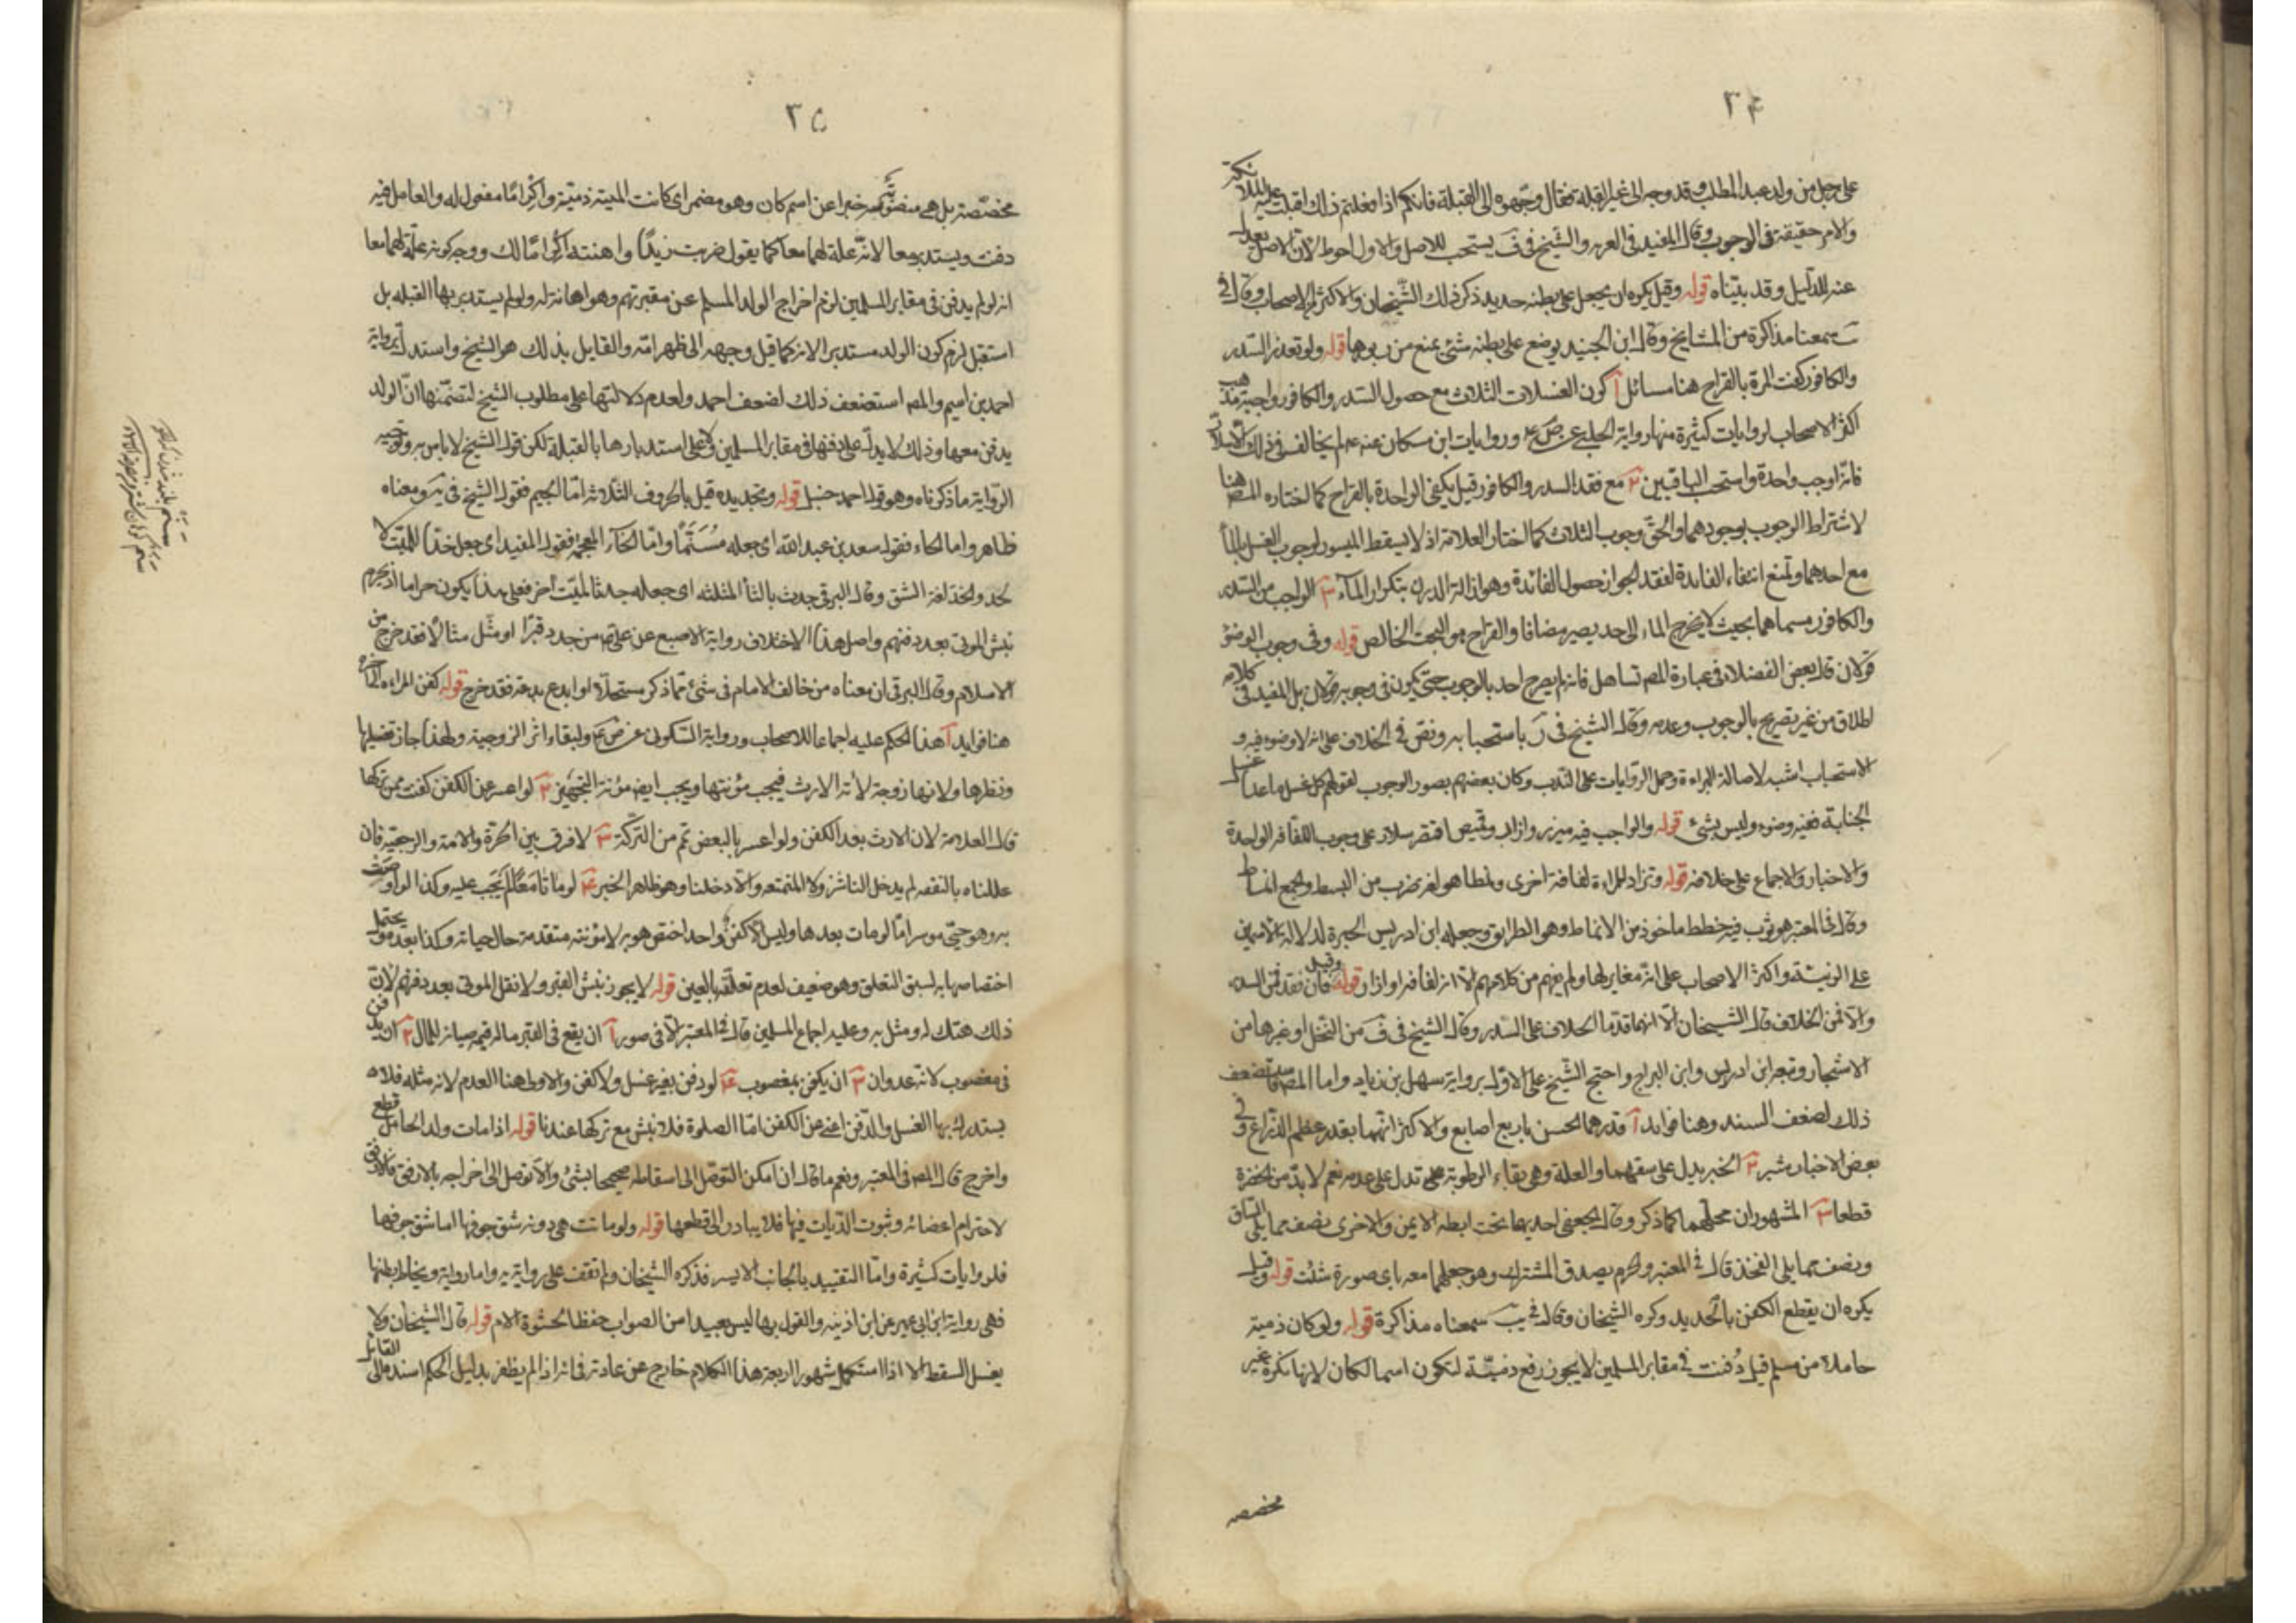 ۲۴
على رجل من ولد عبد المطلب وقد وجه الى غير القبلة فقال وجّهوه الى القبلة فانكم اذا فعلتم ذلك اقبلت عليه الملائكة
والامر حقيقة فى الوجوب وقال المفيد فى الغريه والشيخ فى ف يستحب للاصل والاول احوط لان الاصل يعدل
عنه للدليل وقد بيّناه قوله وقيل يكره ان يجعل على بطنه حديد ذكر ذلك الشيخان والاكثر من الاصحاب وقال فى
سمعناه مذاكرة من المشايخ وقال ابن الجنيد يوضع على بطنه شئ يمنع من ربوها قوله ولو تعذر السدر
والكافور كفت المرة بالقراح هنا مسائل آ كون الغسلات الثلاث مع حصول السدر والكافور واجبة مذهب
اكثر الاصحاب لروايات كثيرة منها رواية الحلبى عن ص ع وروايات ابن مسكان عنه ع لم يخالف فى ذلك الا سلار
فانه اوجب واحدة واستحب الباقيين ٢ مع فقد السدر والكافور قيل يكفى الواحدة بالقراح كما اختاره المصنف هنا
لاشتراط الوجوب بوجودهما والحق وجوب الثلاث كما اختار العلامة اذ لا يسقط الميسور لوجوب الغسل بالماء
مع احدهما ونمنع انتفاء الفايدة لفقد الجواز حصول الفائدة وهو ازالة الدرن بتكرار الماء ٣ الواجب من السدر
والكافور مسماهما بحيث لا يخرج الماء الى حد يصير مضافا والقراح هو البحت الخالص قوله وفى وجوب الوضوء
قولان قال بعض الفضلاء فى عبارة المصم تساهل فانه لم يصرح احد بالوجوب حتى يكون فى وجوبه قولان بل المفيد فى كلامه
اطلاق من غير تصريح بالوجوب وعدمه وقال الشيخ فى ر باستحبابه ونص فى الخلاف على انه لا وضوء فيه و
الاستحباب اشبه لاصالة البراءة وحمل الروايات على الندب وكان بعضهم يصور الوجوب لقولهم كل غسل ما عدا غسل
الجنابة فغير وضوء وليس بشئ قوله والواجب فيه ميزر وازار وقميص اقتصر سلار على وجوب اللفافة الواحدة
والاخبار والاجماع على خلافه قوله وتزاد المراءة لفافة اخرى ونمطا هو لغة ضرب من البسط والجمع انماط
وقال فى المعتبر هو ثوب فيه خطط ماخوذ من الانماط وهو الطرايق وجعله ابن ادريس الحبرة لدلالة الاسمين
على الزينة واكثر الاصحاب على انه مغاير لها ولم يفهم من كلامهم الا انه لفافة او ازار قوله وقيل فان فقد فمن السدر
والا فمن الخلاف قال الشيخان الا انهما قدما الخلاف على السدر وقال الشيخ فى ف من النخل او غيرها من
الاشجار وتبعه ابن ادريس وابن البراج واحتج الشيخ على الاول برواية سهل بن زياد واما المصم فاستضعف
ذلك لضعف السند وهنا فوايد آ قدرهما الحسن باربع اصابع والاكثر انهما بقدر عظم الذراع وفى
بعض الاخبار شبر ٢ الخبر يدل على سقهما والعلة وهى بقاء الرطوبة على تدل على عدمه نعم لا بد من الخضرة
قطعا ٣ المشهور ان محلهما كما ذكر وقال الجعفى احديهما تحت ابطه الايمن والاخرى نصف مما يلى الساق
ونصف مما يلى الفخذ قال فى المعتبر والجزم يصدق المشترك وهو جعلهما معه باى صورة شئت قوله وقيل
يكره ان يقطع الكفن بالحديد وكره الشيخان وقال فى يب سمعناه مذاكرة قوله ولو كان ذمية
حاملا من مسلم قيل دُفنت فى مقابر المسلمين لا يجوز رفع ذميّة لتكون اسما لكان لانها نكرة غير
مخصصه
۲۵
مخصّصة بل هى منصوبة خبرا عن اسم كان وهو مضمر اى كانت الميتة ذميّة واكرامًا مفعول له والعامل فيه
دفنت ويستدبر معا لانه علة لهما معا كما يقول ضربت زيدًا واهنته اكرامًا لك ووجه كونه علّة لهما معا
انه لو لم يدفن فى مقابر المسلمين لزم اخراج الولد المسلم عن مقبرتهم وهو اهانة له ولو لم يستدبر بها القبله بل
استقبل لزم كون الولد مستدبرا لانه كما قيل وجهه الى ظهر امّه والقايل بذلك هو الشيخ واستدل برواية
احمد بن اشيم والمصم استضعف ذلك لضعف احمد ولعدم دلالتها على مطلوب الشيخ لتضمّنها ان الولد
يدفن معها وذلك لا يدل على دفنها فى مقابر المسلمين ولا على استدبارها بالقبلة لكن قول الشيخ لا باس به وتوجيه
الرواية ما ذكرناه وهو قول احمد حنبل قوله وتجديده قيل بالحروف الثلاثة امّا الجيم فقول الشيخ فى يه ومعناه
ظاهر واما الحاء فقول سعد بن عبد الله اى جعله مُسَنَّمًا وامّا الخاء المعجمة فقول المفيد اى جعل خدًا للميّت لا
لحد والخد لغة الشق وقال البرقى جدث بالثاء المثلثه اى جعله جدثا لميّت آخر فعلى هذا يكون حراما اذ يحرم
نبش الموتى بعد دفنهم واصل هذا الاختلاف رواية الاصبغ عن على ع من جدد قبرًا او مثّل مثالًا فقد خرج من
الاسلام وقال البرقى ان معناه من خالف الامام فى شئ مما ذكر مستحلا او ابدع بدعة فقد خرج قوله كفن المراءه
هنا فوايد آ هذا الحكم عليه اجماعا للاصحاب ورواية السكونى عن ص ع ولبقاء اثر الزوجية ولهذا جاز تغسيلها
ونظرها ولانها زوجة لآية الارث فيجب مؤنتها ويجب ايضا مؤنة التجهيز ٢ لو اعسر عن الكفن كفنت من تركتها
قال العلامة لان الارث بعد الكفن ولو اعسر بالبعض تم من التركة ٣ لا فرق بين الحرة والامة والرجعيّة فان
عللناه بالنفقه لم يدخل الناشز ولا المتمتعه والا دخلتا وهو ظاهر الخبر ٤ لو ماتا مَعًا لم يجب عليه وكذا لو اوصت
به وهو حىّ موسر امّا لو مات بعدها وليس الا كفنٌ واحد اختص هو به لان مؤنته متقدمة حال حياته وكذا بعد موته يحتمل
اختصاصها به لسبق التعلق وهو ضعيف لعدم تعلقها بالعين قوله لا يجوز نبش القبر ولا نقل الموتى بعد دفنهم لان
ذلك هتك له ومثل به وعليه اجماع المسلمين قال فى المعتبر الا فى صور آ ان يقع فى القبر ماله قيمه صيانة للمال ٢ ان يدفن
فى مغصوب لانه عدوان ٣ ان يكفن بمغصوب ٤ لو دفن بغير غسل ولا كفن والاولى هنا العدم لانه مثله فلا
يستدرك بها الغسل والدفن اغنى عن الكفن امّا الصلوة فلا نبش مع تركها عندنا قوله اذا مات ولد الحامل قطع
واخرج قال المصم فى المعتبر ونعم ما قال ان امكن التوصّل الى اسقاطه صحيحا بشئ والا توصل الى اخراجه بالارفق فالارفق
لاحترام اعضائه وثبوت الديات فيها فلا يبادر الى قطعها قوله ولو ماتت هى دونه شق جوفها اما شق جوفها
فلروايات كثيرة وامّا التقييد بالجانب الايسر فذكره الشيخان ولم نقف على رواية به واما رواية ويخاط بطنها
فهى رواية ابن ابى عمير عن ابن اذينه والقول بها ليس بعيدا من الصواب حفظا لحشوة الام قوله قال الشيخان ولا
يغسل السقط الا اذا استكمل شهورا اربعة هذا الكلام خارج عن عادته فانه اذا لم يظفر بدليل الحكم اسنده الى القائل